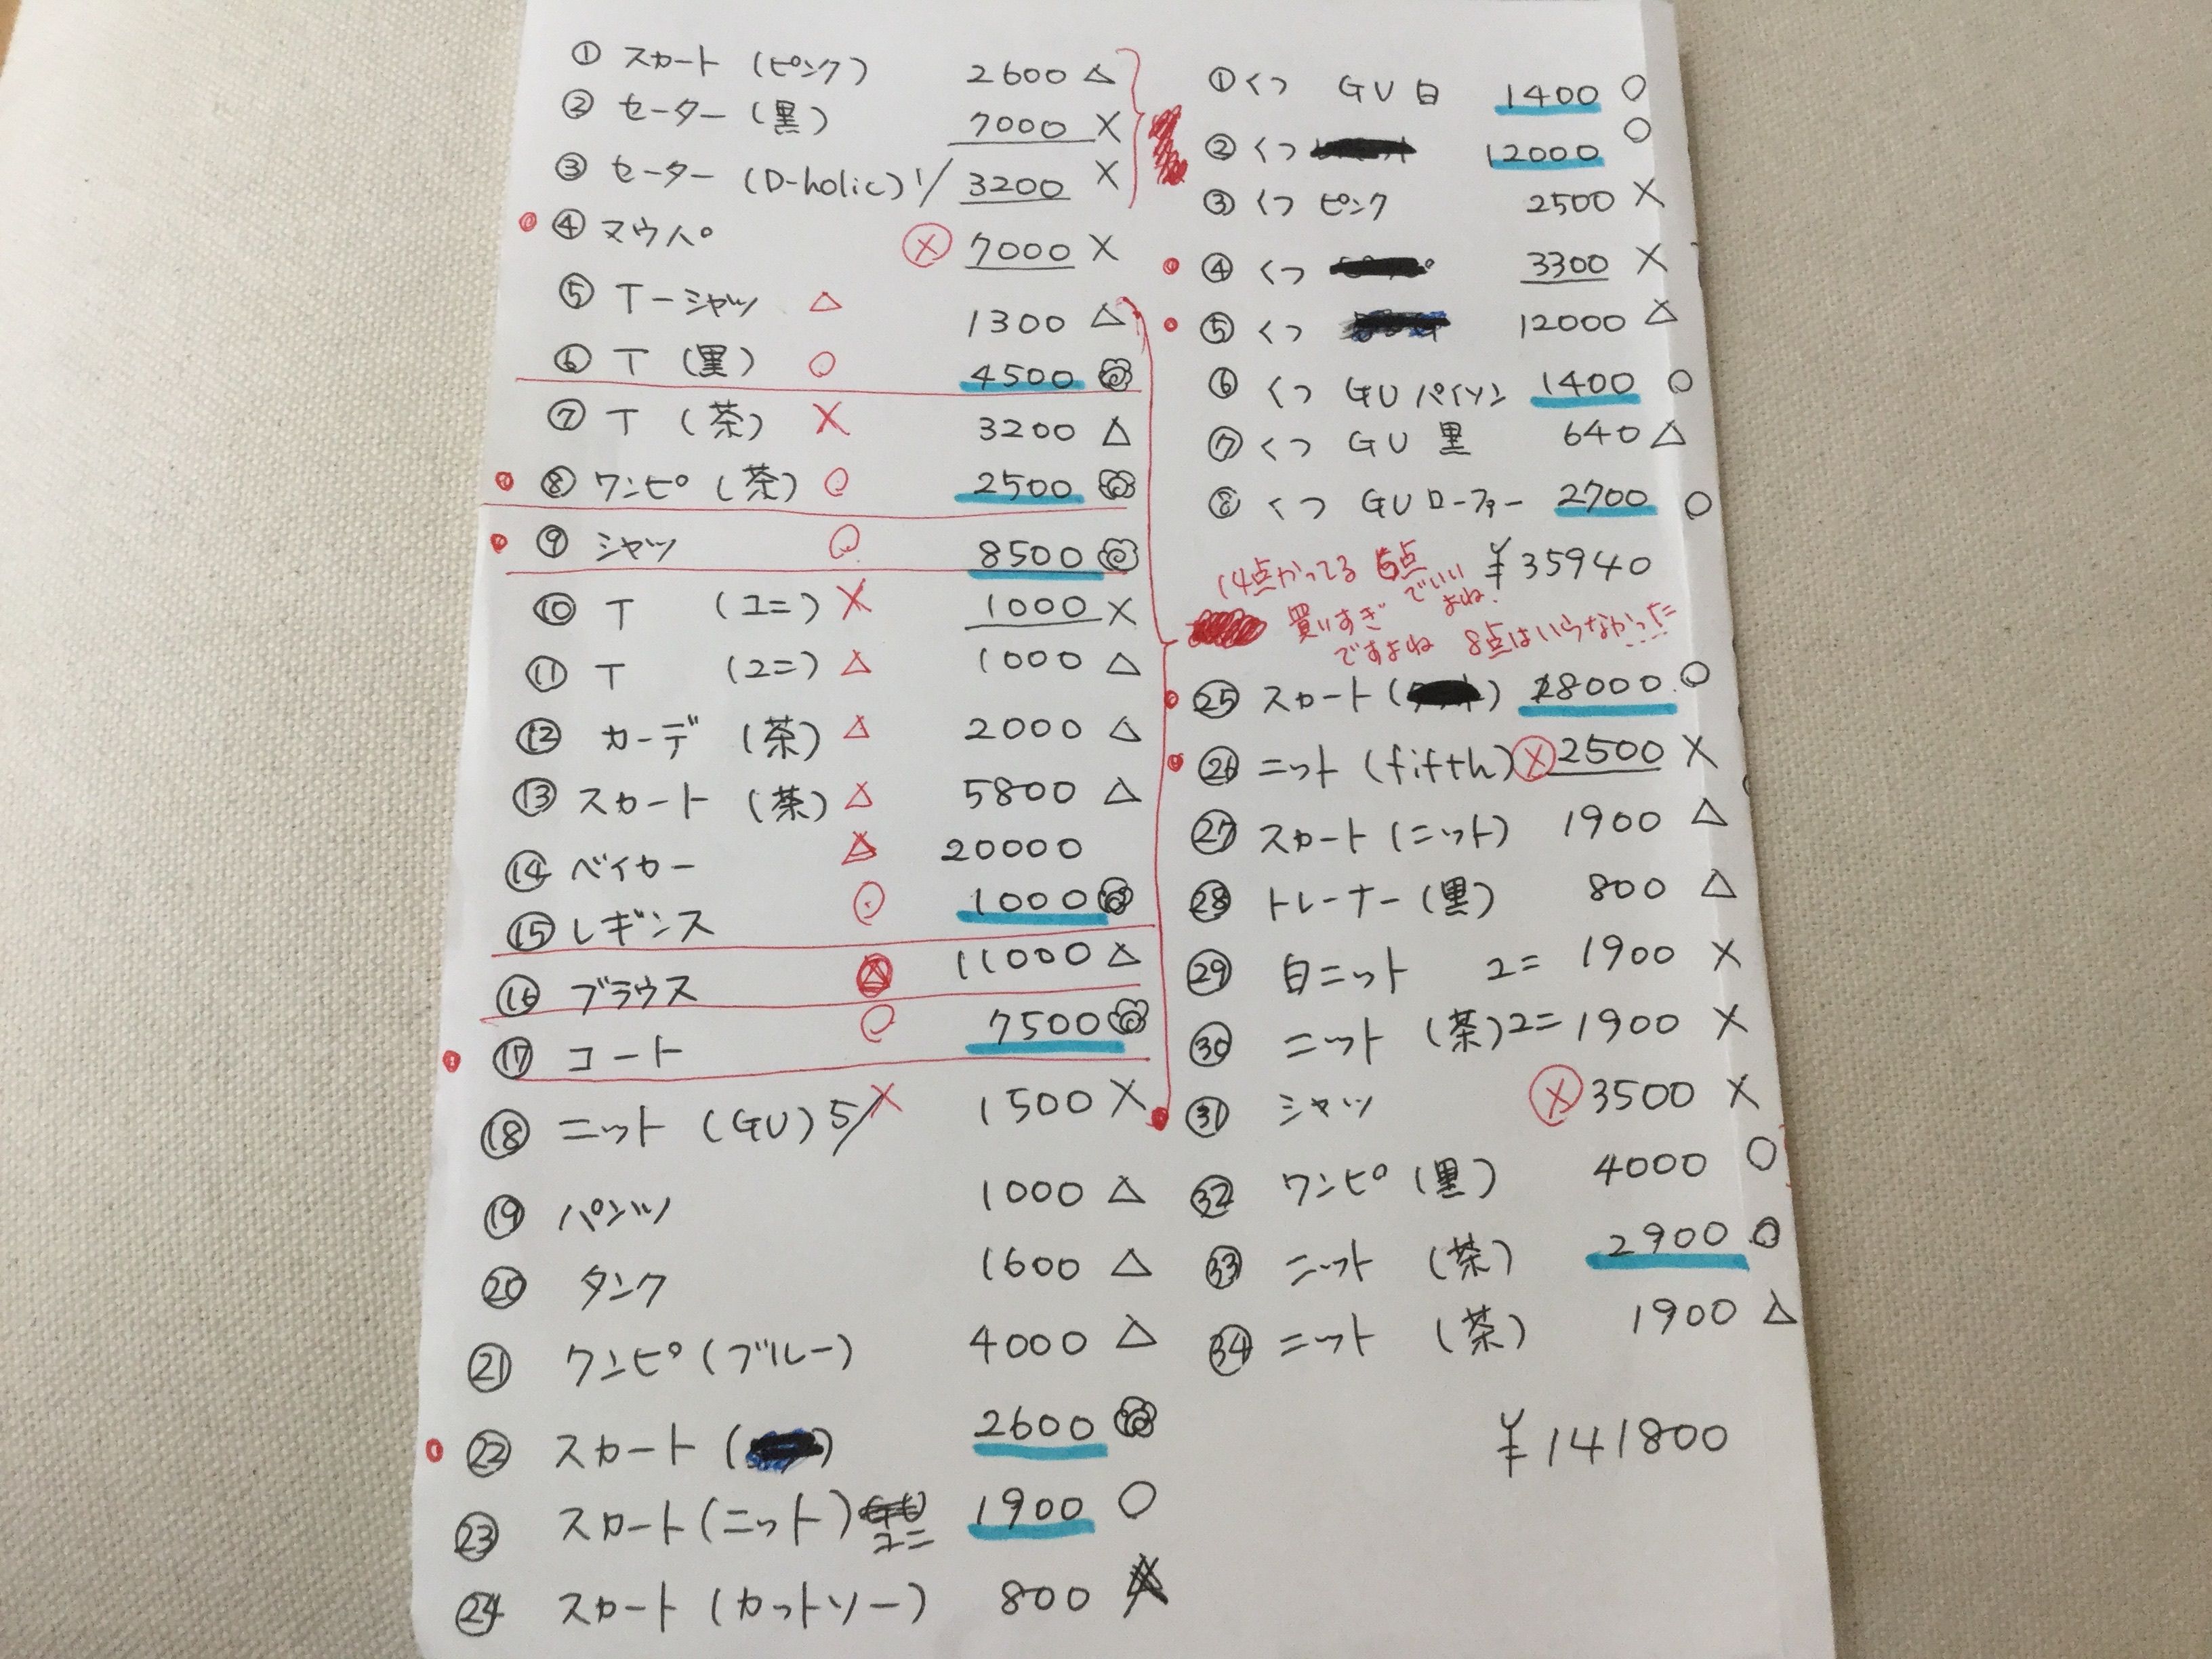 ① スカート (ピンク) 2600 △
② セーター (黒) 7000 X
③ セーター (D-holic) 1/ 3200 X
④ マウンペ Ⓧ 7000 X
⑤ T-シャツ △ 1300 △
⑥ T (黒) ○ 4500
⑦ T (茶) X 3200 △
⑧ ワンピ (茶) ○ 2500
⑨ シャツ ○ 8500
⑩ T (ユニ) X 1000 X
⑪ T (ユニ) △ 1000 △
⑫ カーデ (茶) △ 2000 △
⑬ スカート (茶) △ 5800 △
⑭ ベイカー △ 20000
⑮ レギンス ○ 1000
⑯ ブラウス △ 11000 △
⑰ コート ○ 7500
⑱ ニット (GU) 5/ X 1500 X
⑲ パンツ 1000 △
⑳ タンク 1600 △
㉑ ワンピ (ブルー) 4000 △
㉒ スカート ( ) 2600
㉓ スカート (ニット) ユニ 1900 ○
㉔ スカート (カットソー) 800
① くつ GU 白 1400 ○
② くつ 12000 ○
③ くつ ピンク 2500 X
④ くつ 3300 X
⑤ くつ 12000 △
⑥ くつ GU パイソン 1400 ○
⑦ くつ GU 黒 640 △
⑧ くつ GU ローファー 2700 ○
¥35940
14点かってる 6点でいいよね.
買いすぎですよね 8点はいらなかった...
㉕ スカート ( ) 18000 ○
㉖ ニット (fifth) Ⓧ 2500 X
㉗ スカート (ニット) 1900 △
㉘ トレーナー (黒) 800 △
㉙ 白ニット ユニ 1900 X
㉚ ニット (茶) ユニ 1900 X
㉛ シャツ Ⓧ 3500 X
㉜ ワンピ (黒) 4000 ○
㉝ ニット (茶) 2900 ○
㉞ ニット (茶) 1900 △
¥141800